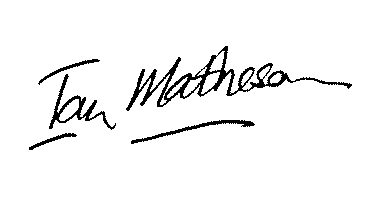 Ian Matheson